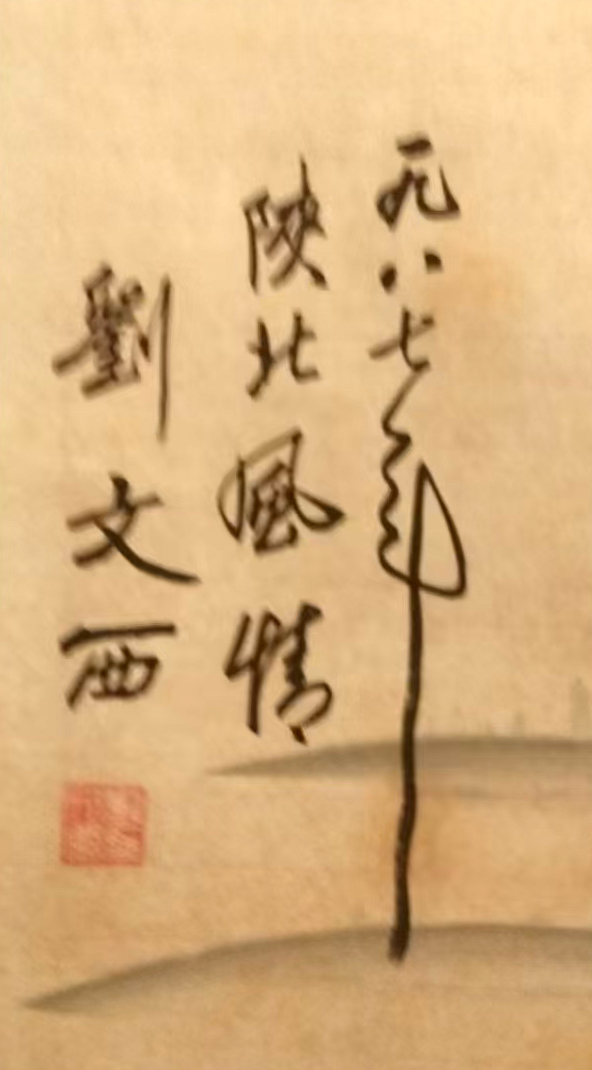 一九八七年
陝北風情
劉文西